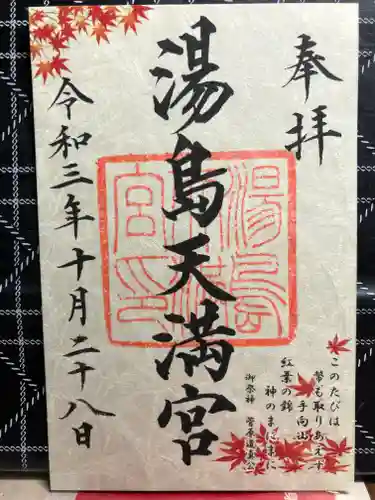 奉拝
湯島天満宮
令和三年十月二十八日
このたびは
幣も取りあえず
手向山
紅葉の錦
神のまにまに
御祭神 菅原道真公